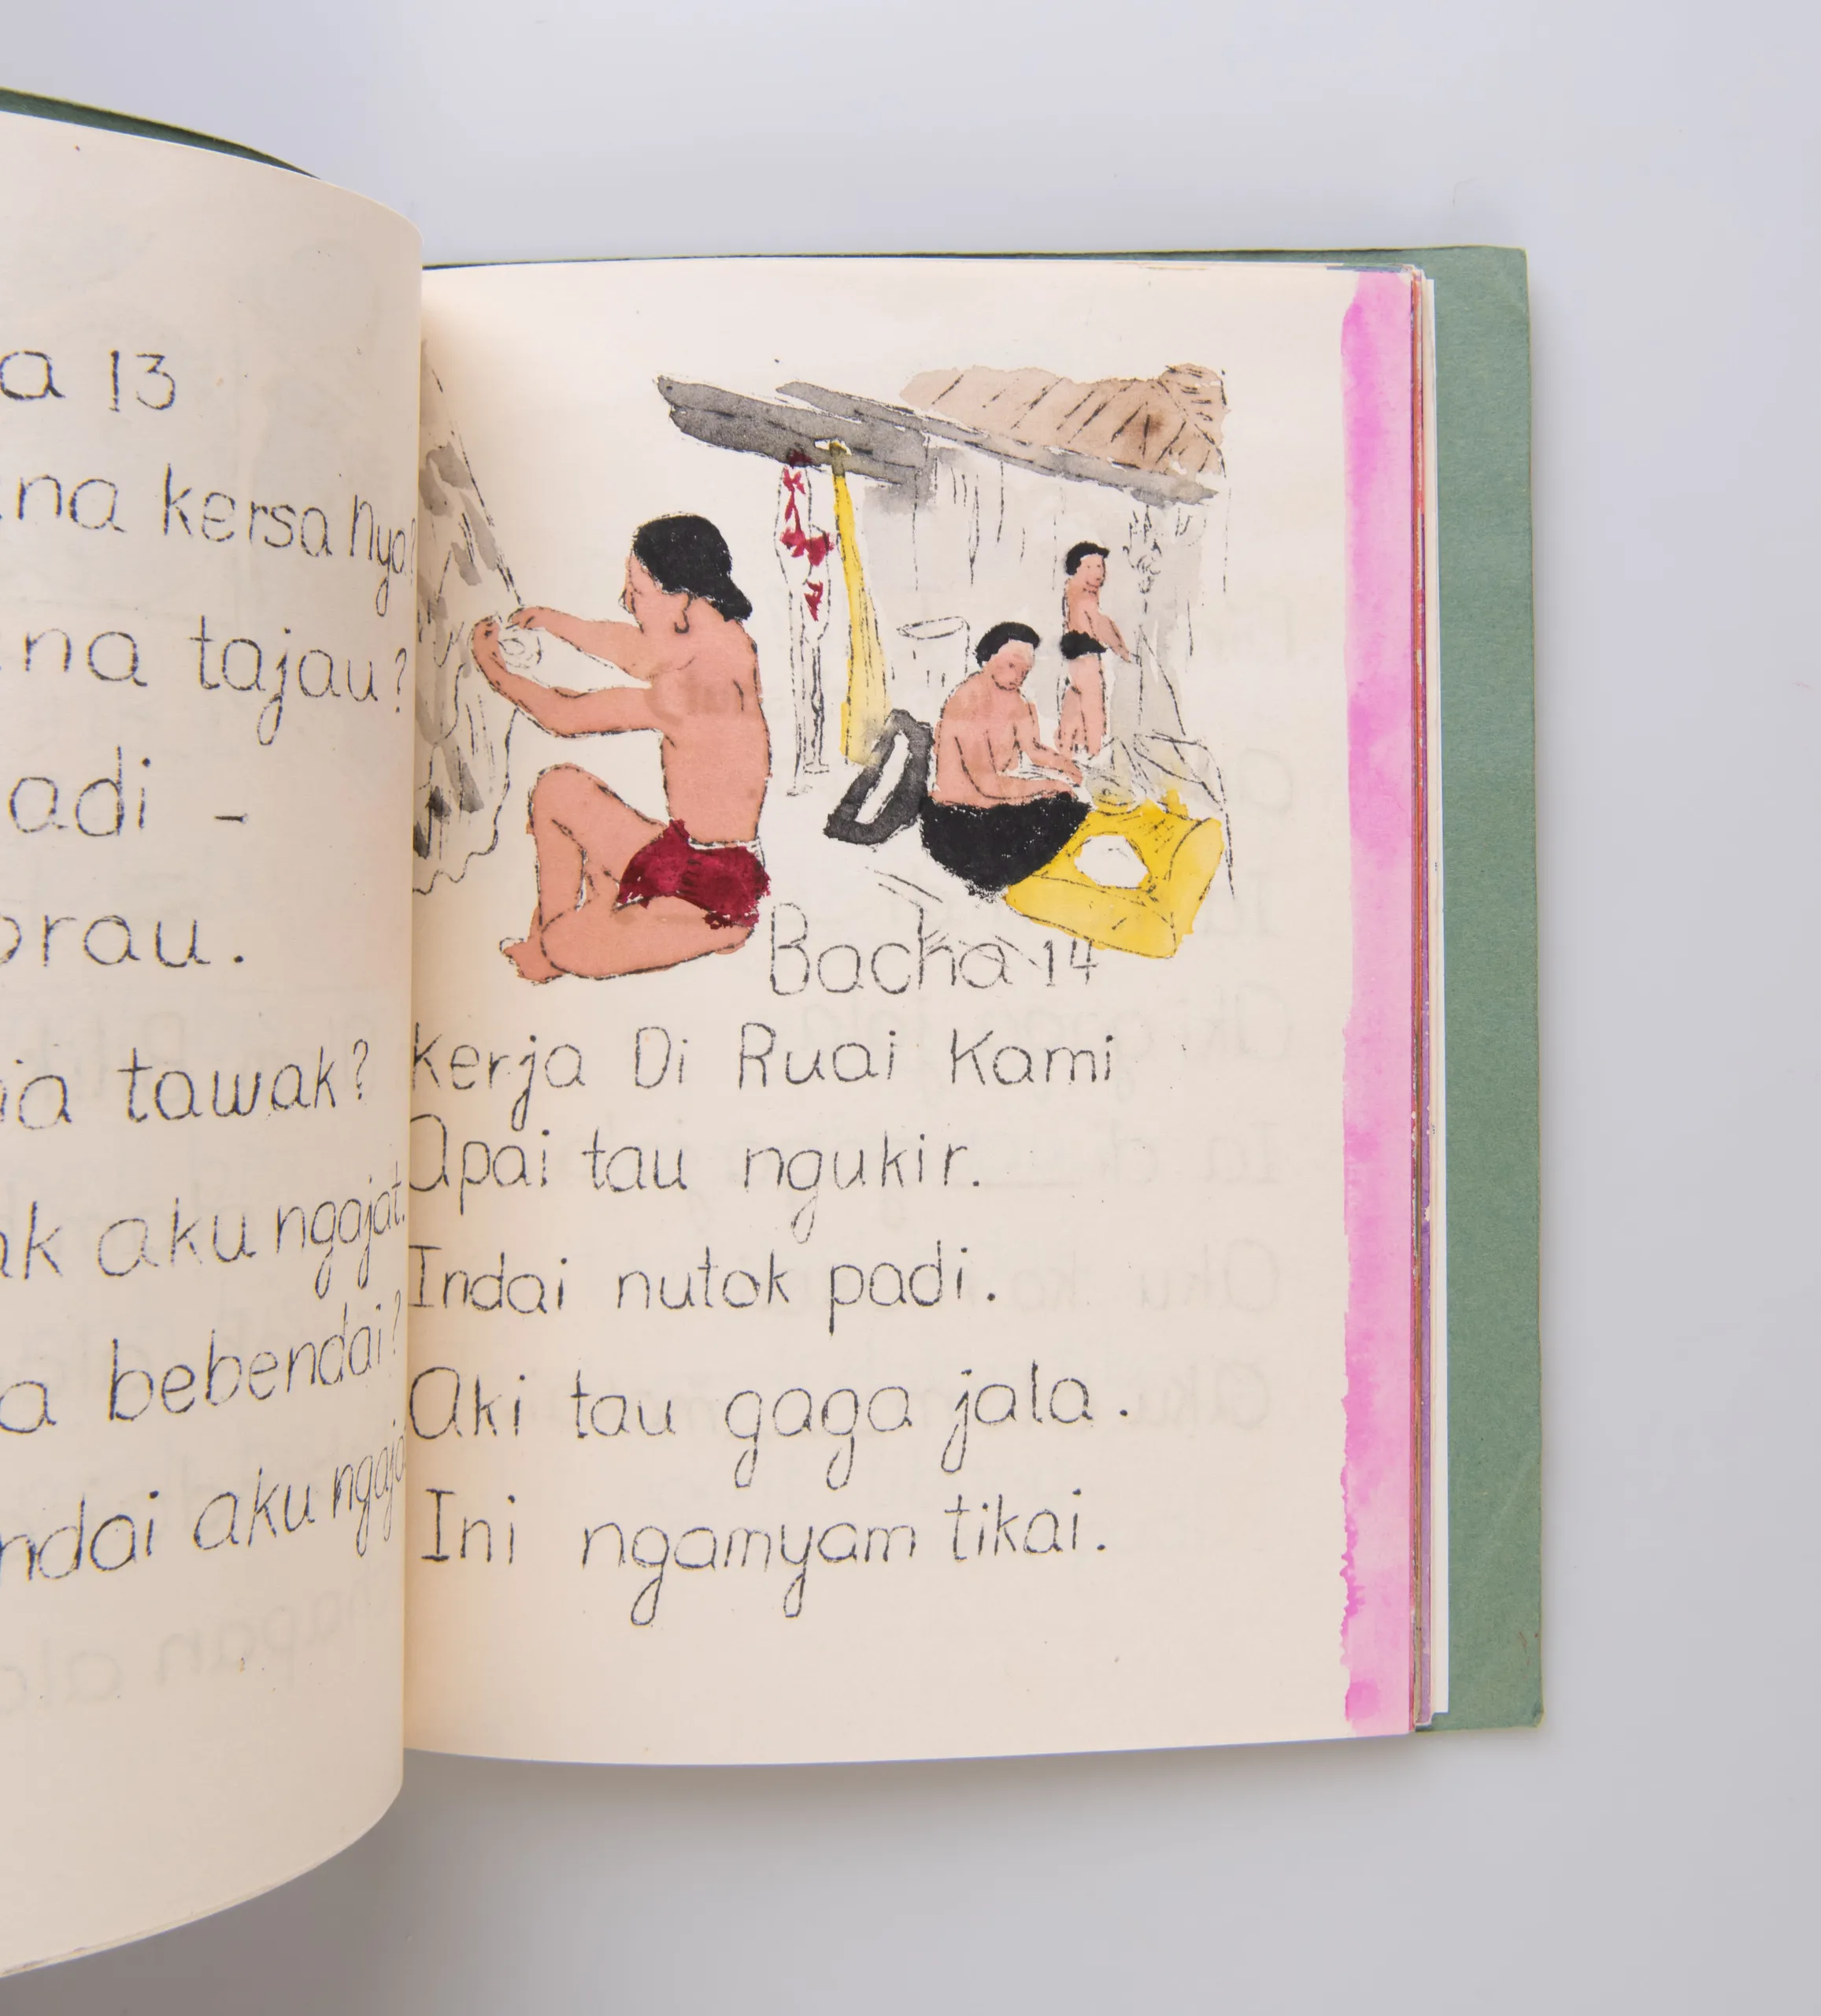 13
kersa nya?
tajau?
-
tawak?
aku ngajat.
bebendai?
aku
Bacha 14
Kerja Di Ruai Kami
Apai tau ngukir.
Indai nutok padi.
Aki tau gaga jala.
Ini ngamyam tikai.